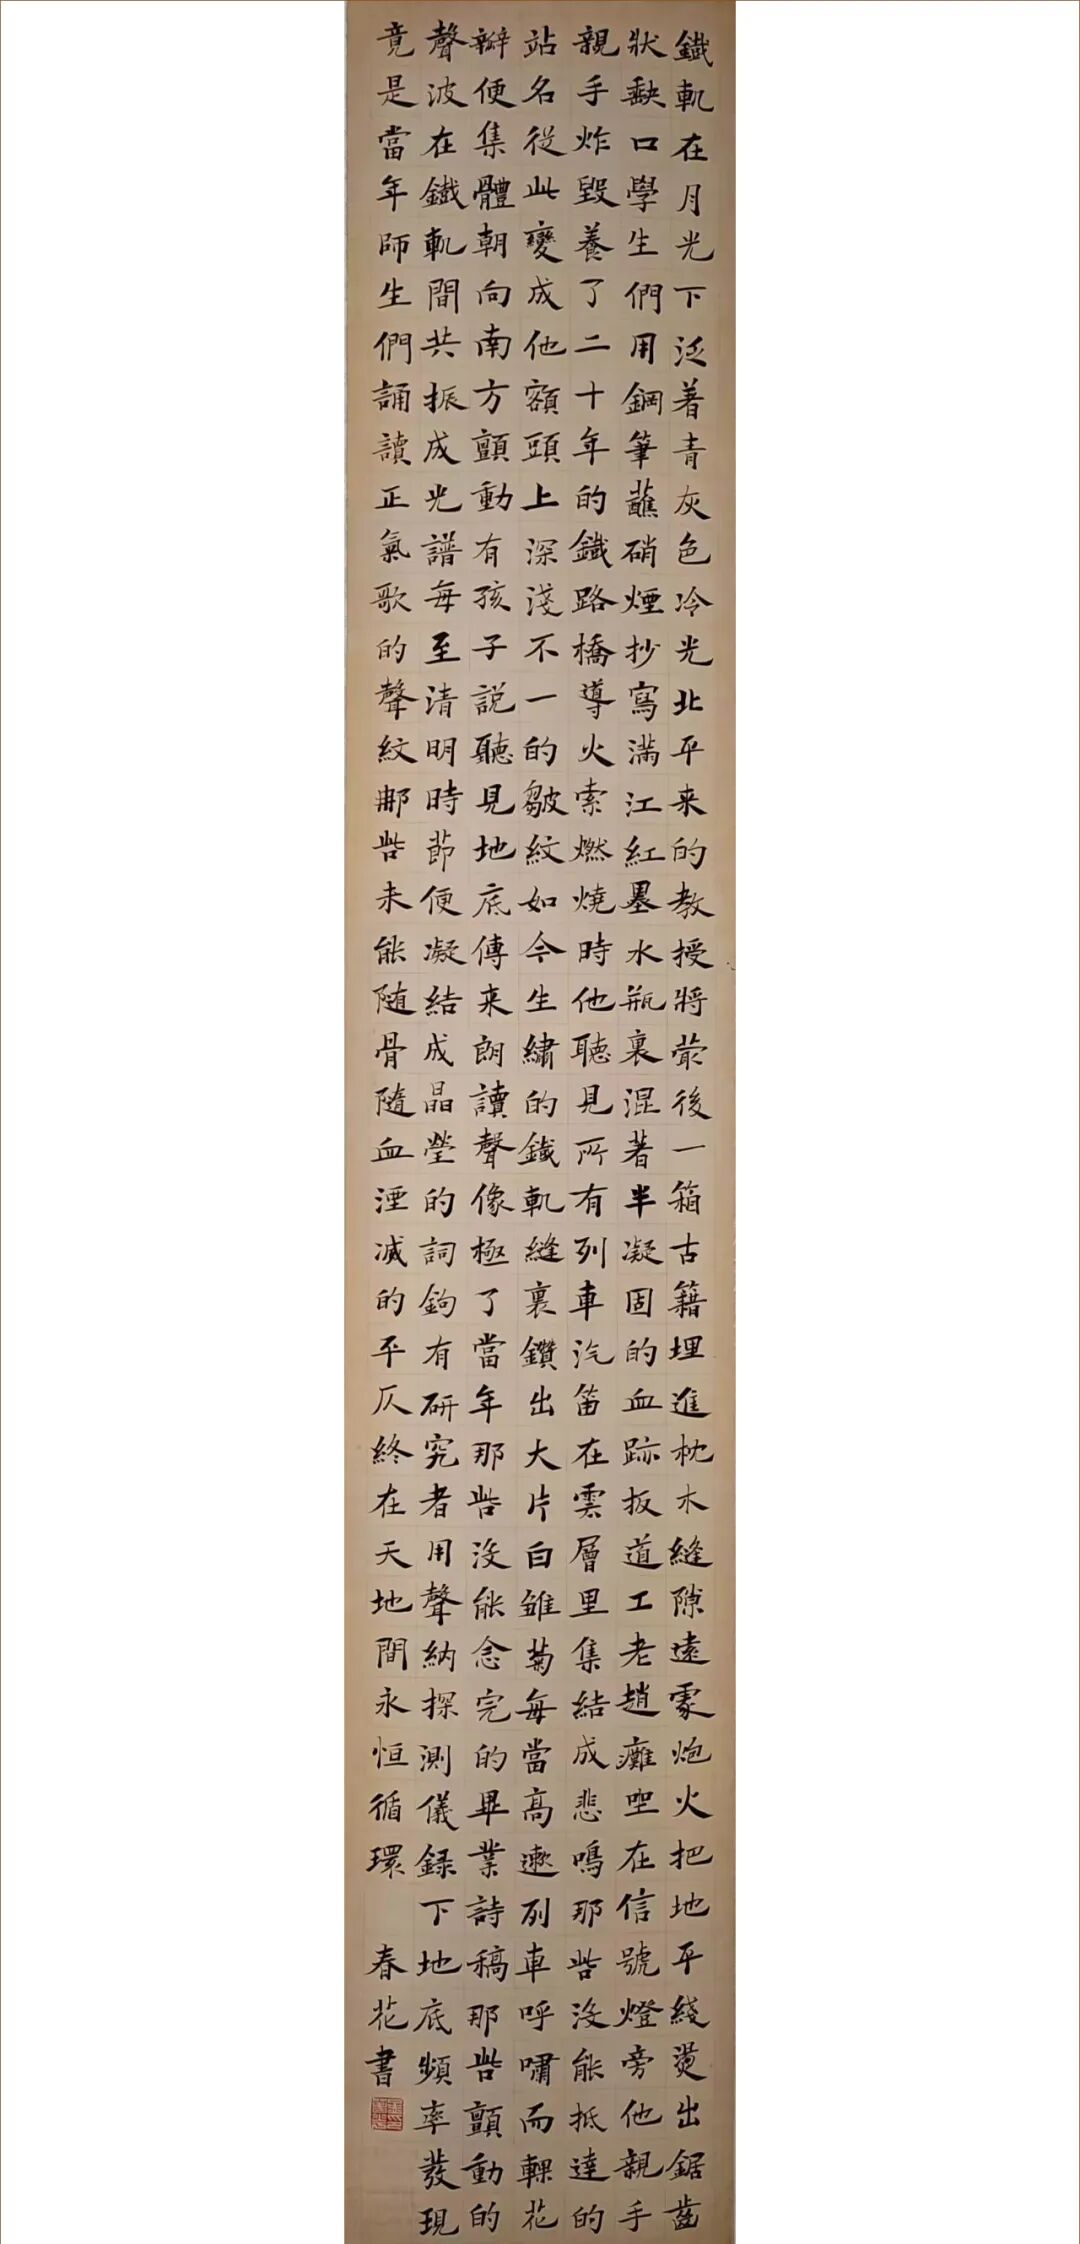 鐵軌在月光下泛着青灰色冷光北平来的教授將最後一箱古籍埋進枕木縫隙遠處炮火把地平綫燙出鋸齒
狀缺口學生們用鋼筆蘸硝煙抄寫滿江紅墨水瓶裏混著半凝固的血跡扳道工老趙癱坐在信號燈旁他親手
親手炸毀養了二十年的鐵路橋導火索燃燒時他聽見所有列車汽笛在雲層里集結成悲鳴那些沒能抵達的
站名從此變成他額頭上深淺不一的皺紋如今生繡的鐵軌縫裏鑽出大片白雏菊每當高遬列車呼嘯而輠花
瓣便集體朝向南方顫動有孩子説聽見地底傳来朗讀聲像極了當年那些沒能念完的畢業詩稿那些顫動的
聲波在鐵軌間共振成光譜每至清明時節便凝結成晶瑩的詞鉤有研究者用聲納探測儀録下地底頻率發現
竟是當年師生們誦讀正氣歌的聲紋那些未能随骨隨血湮滅的平仄終在天地間永恒循環 春花書